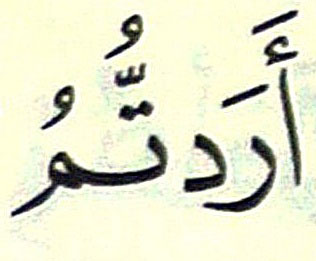 أَرَدتُّمُ